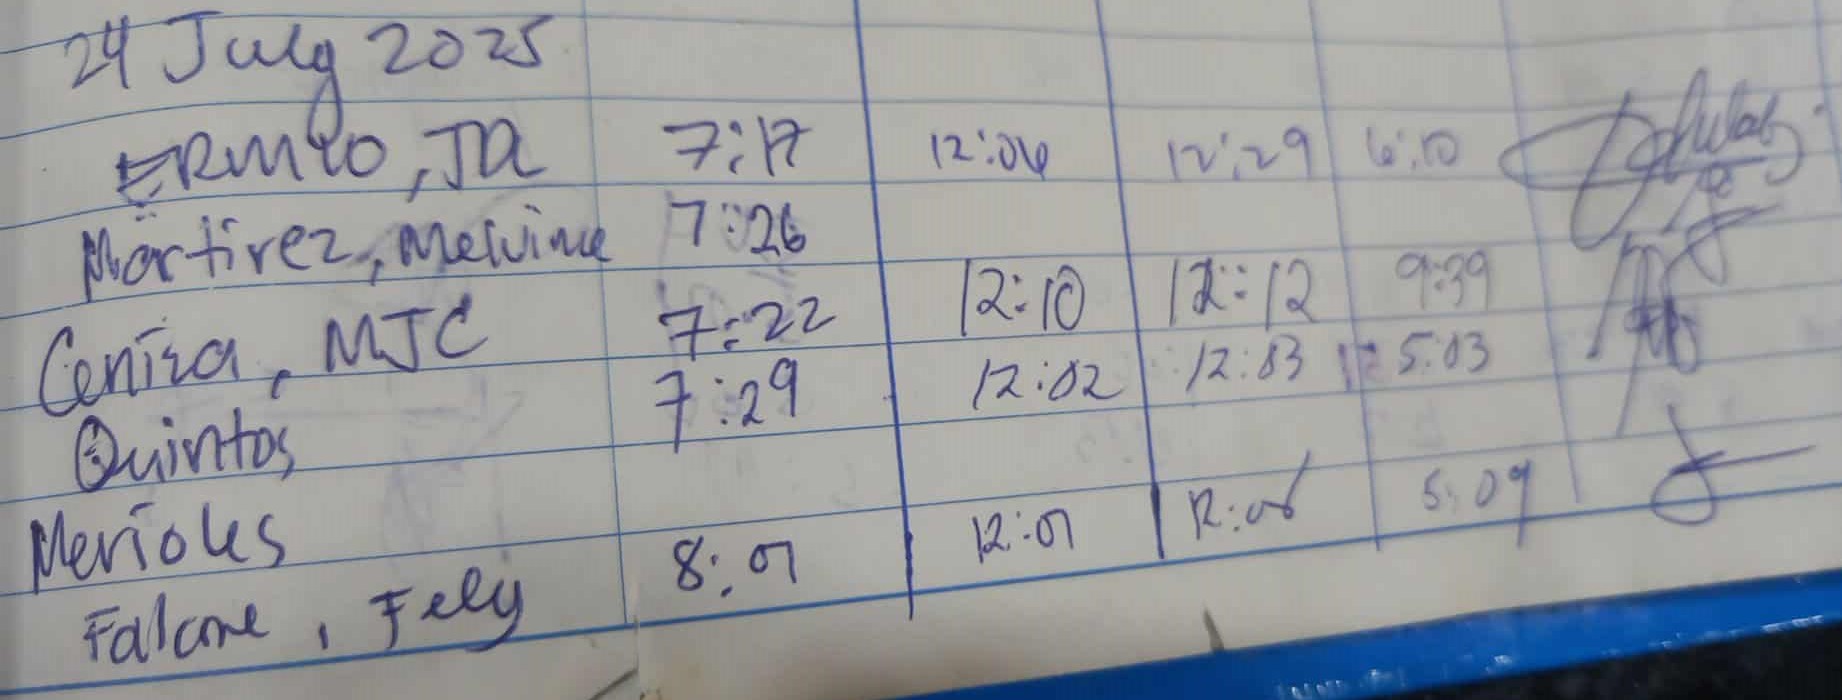 24 July 2025
ERMIO, JA 7:17 12:06 12:29 6:10
Martirez, Melvine 7:26
Ceniza, MJC 7:22 12:10 12:12 9:39
Quintos 7:29 12:02 12:03 5:03
Merioles
Falcone, Fely 8:07 12:07 12:08 5:09